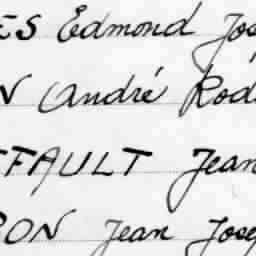 ES Edmond Jos
N André Rod
FAULT Jean
RON Jean Josep